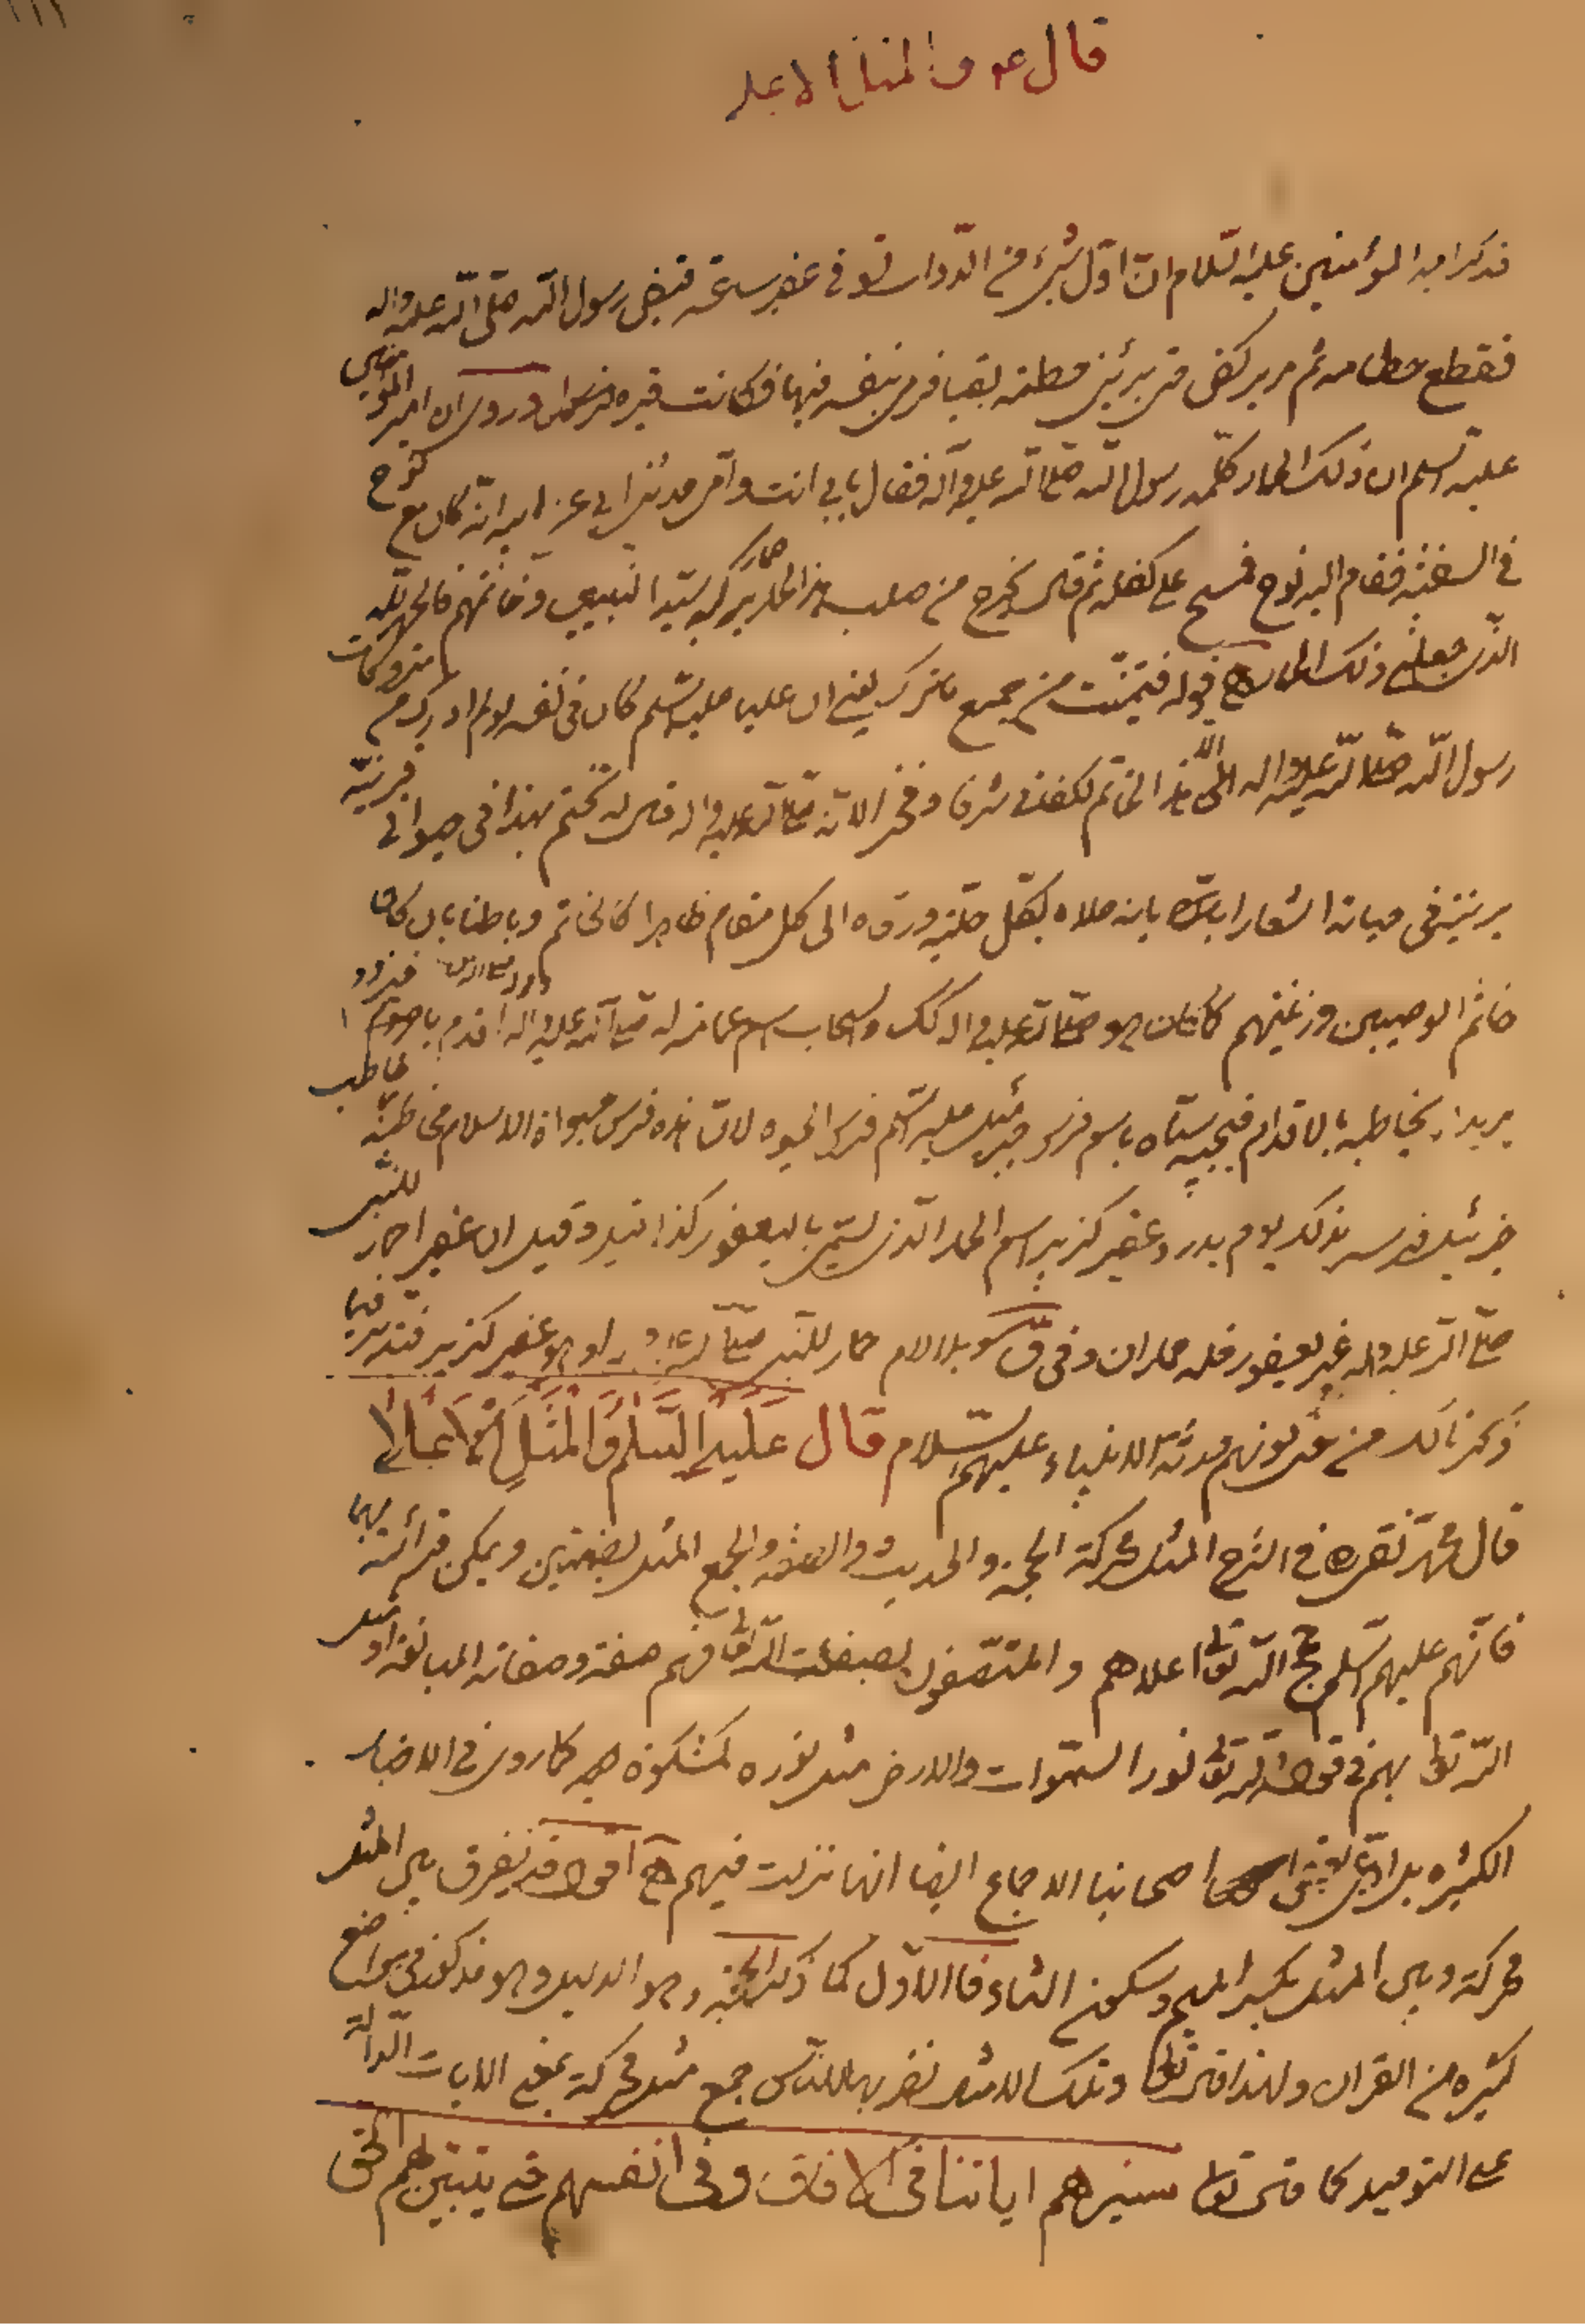 قال ع و المثل الاعلى
فذكر امير المؤمنين عليه السلام ان اول شىء من الدواب توفى عفير ساعة قبض رسول الله صلى الله عليه واله
فقطع خطامه ثم مر يركض حتى بئر خطمة بقبا فرمى بنفسه فيها فكانت قبره وروى ان امير المؤمنين
عليه السلم ان ذلك الحمار كلم رسول الله صلى الله عليه وآله فقال بابى انت وامى حدثنى ابى عن ابيه انه كان مع نوح
فى السفينة فقام اليه نوح فمسح على كفله ثم قال يخرج من صلب هذا الحمار حمار يركبه سيد النبيين وخاتمهم فالحمد لله
الذى جعلنى ذلك الحمار قوله فتيمنت من جميع ما ترك يعنى ان عليا عليه السلم كان فى نفسه لو لم ادرك من متروكات
رسول الله صلى الله عليه واله الا هذا الخاتم لكفانى شرفا وفخرا لانه صلى الله عليه واله قال له تختم بهذا فى حيوتى
فى حياته اشعارا بانه كل مقام ظاهرا كالخاتم وباطنا بان كان
خاتم الوصيين وزينتهم كما كان هو صلى الله عليه واله كذلك والسحاب اسم عمامة له صلى الله عليه واله اقدم يا حيزوم
يريد ان يخاطبه بالاقدام باسم فرس جبرئيل عليه السلم فرس الحيوه لان هذه فرس حيواة الاسلام مخاطبة
جبرئيل فرسه بذلك يوم بدر وعفير كزبير اسم الحمار الذى يسمى باليعفور كذا قيل وقيل ان عفيرا حمار للنبى
صلى الله عليه واله غير يعفور فله حماران وفى ق بلا لام حمار للنبى صلى الله عليه واله او هو عفير كزبير
من ورثة الانبياء عليهم السلام قال عليه السلم و المثل الاعلى
قال فى الشرح المثل محركة الحجة والحديث والصفة والجمع المثل بضمتين ويمكن قرائته بهما
فانهم عليهم السلم حجج الله تعالى اعلاهم و المتصفون بصفات الله تعالى فهم صفته وصفاته المبالغة او مثل
الله تعالى بهم فى قوله الله نور السموات والارض مثل نوره كمشكوة كما روى فى الاخبار
الكثيره بل ادعى بعض اصحابنا الاجماع ايضا انها نزلت فيهم اقول قد يفرق بين المثل
محركة وبين المثل بكسر الميم وسكون الثاء فالاول كما ذكر الحجة وهو الدليل وهو مذكور فى مواضع
كثيره من القران ولهذا قال تعالى وتلك الامثال نضربها للناس جمع مثل محركة بمعنى الايات الدالة
على التوحيد كما قال تعالى سنريهم اياتنا فى الافاق وفى انفسهم حتى يتبين لهم الحق